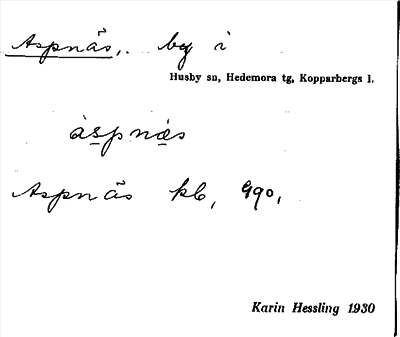 Aspnäs, by i
Husby sn, Hedemora tg, Kopparbergs l.
àspnæs
Aspnäs kb,
Karin Hessling 1930